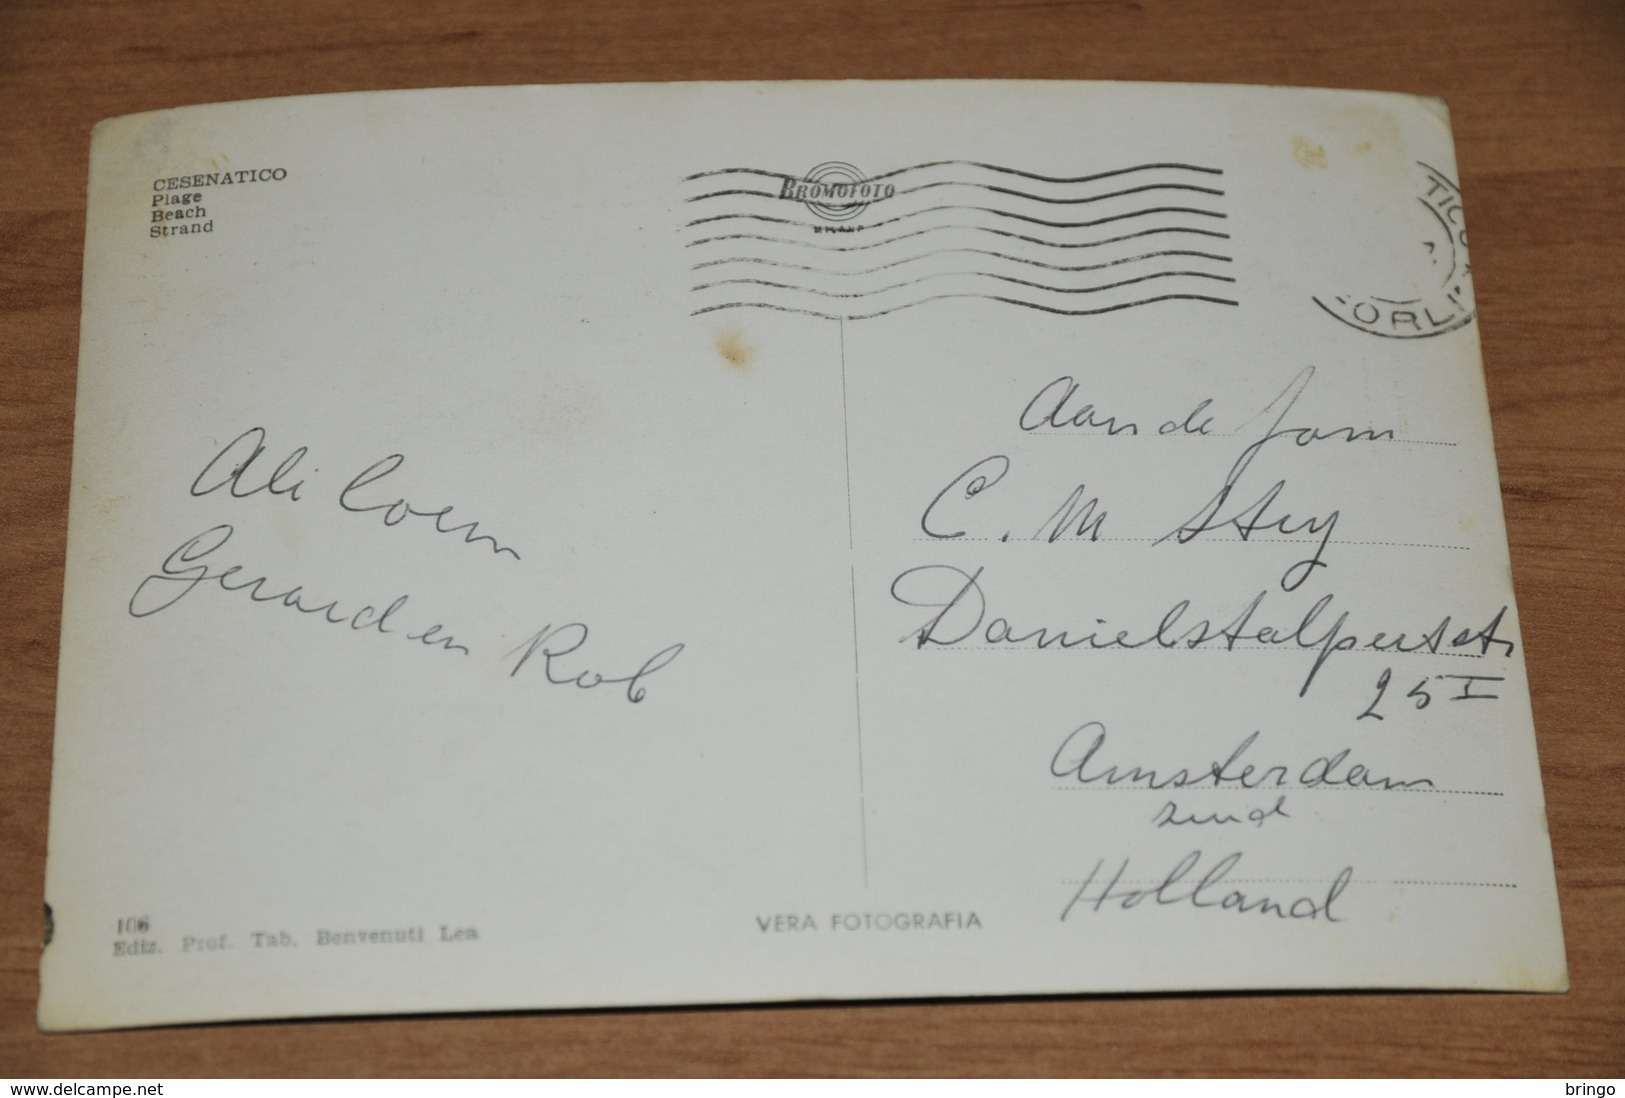 CESENATICO
Plage
Beach
Strand
BROMOFOTO
MILANO
TICO
FORLI
Ali Coen
Gerard en Rob
Aan de fam
C. M Stry
Danielstalpertstr
25 I
Amsterdam
zuid
Holland
106
Ediz. Prof. Tab. Benvenuti Lea
VERA FOTOGRAFIA
www.delcampe.net
bringo